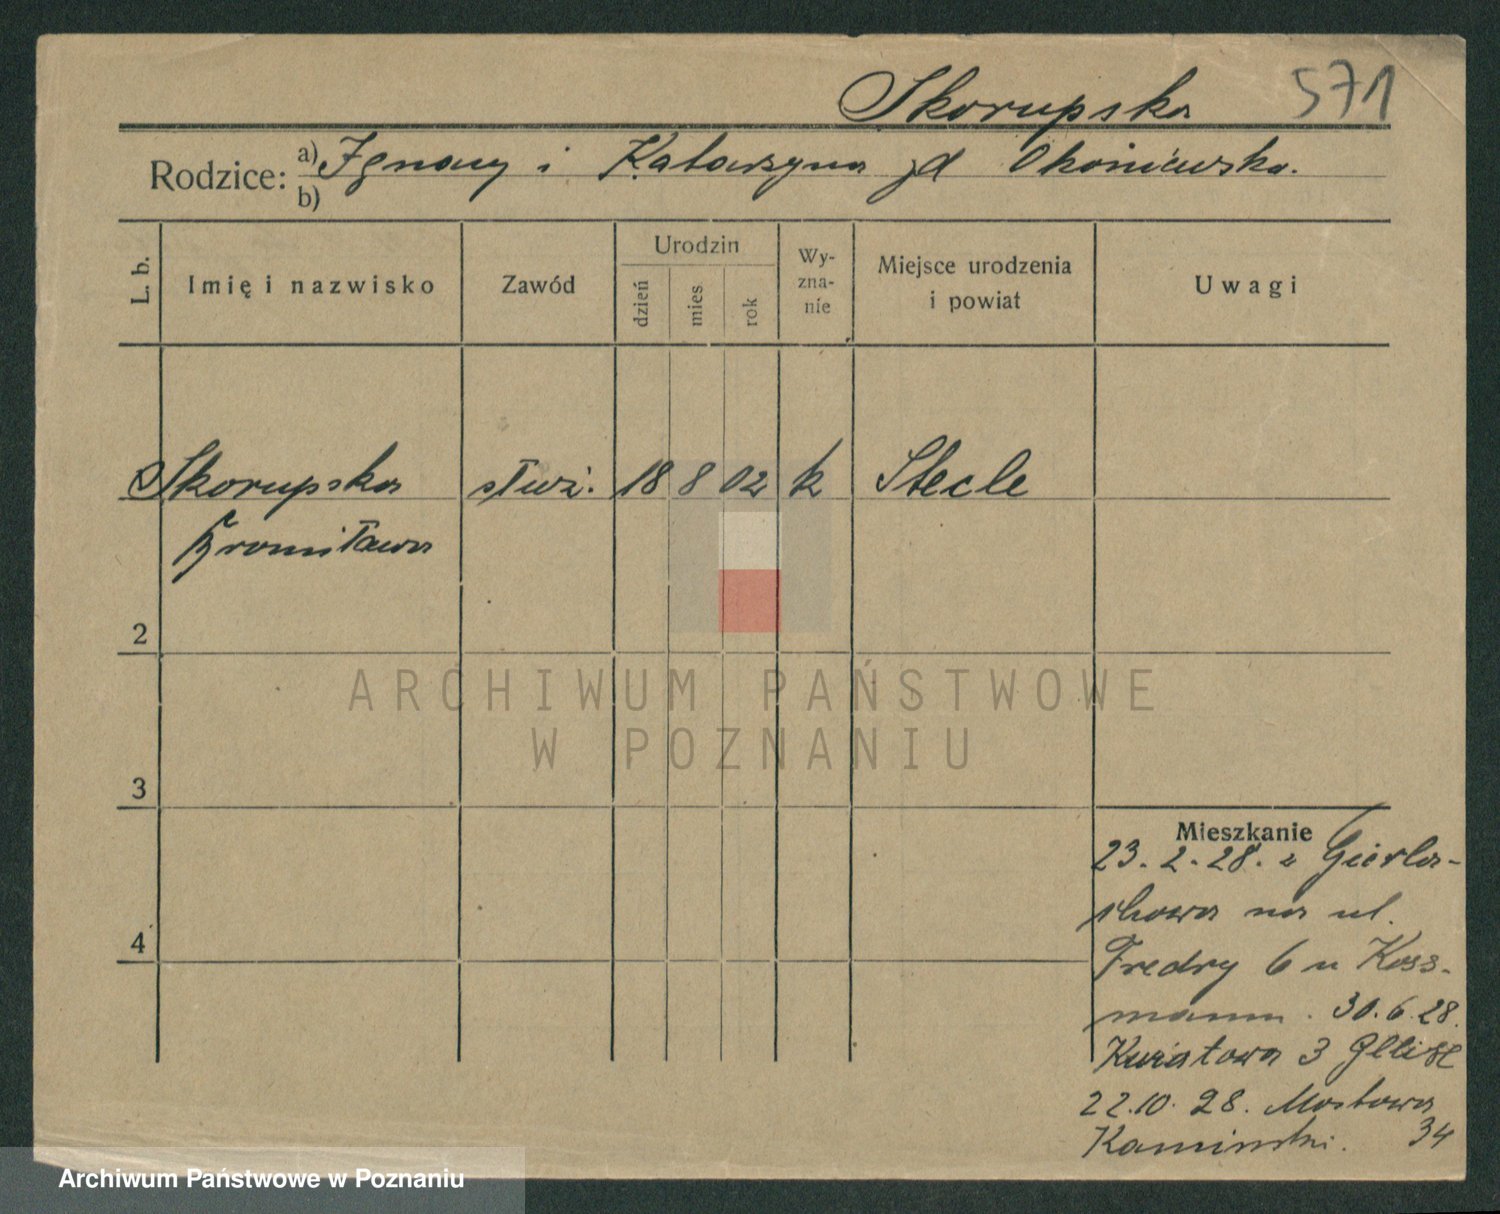 Skorupska 571
Rodzice: a) Ignacy i Katarzyna zd Okoniewska.
b)
L. b.
Imię i nazwisko
Zawód
Urodzin
dzień
mies
rok
Wy-
zna-
nie
Miejsce urodzenia
i powiat
Uwagi
Skorupska służ. 18 8 02 k
Bromisława
2
3
4
ARCHIWUM PAŃSTWOWE
W POZNANIU
Mieszkanie
23.2.28. z Gierła-
chowa na ul.
Fredry 6 u Koss-
mann. 30.6.28.
Kwiatowa 3
22.10.28. Mostowa
Kaminski. 34
Archiwum Państwowe w Poznaniu